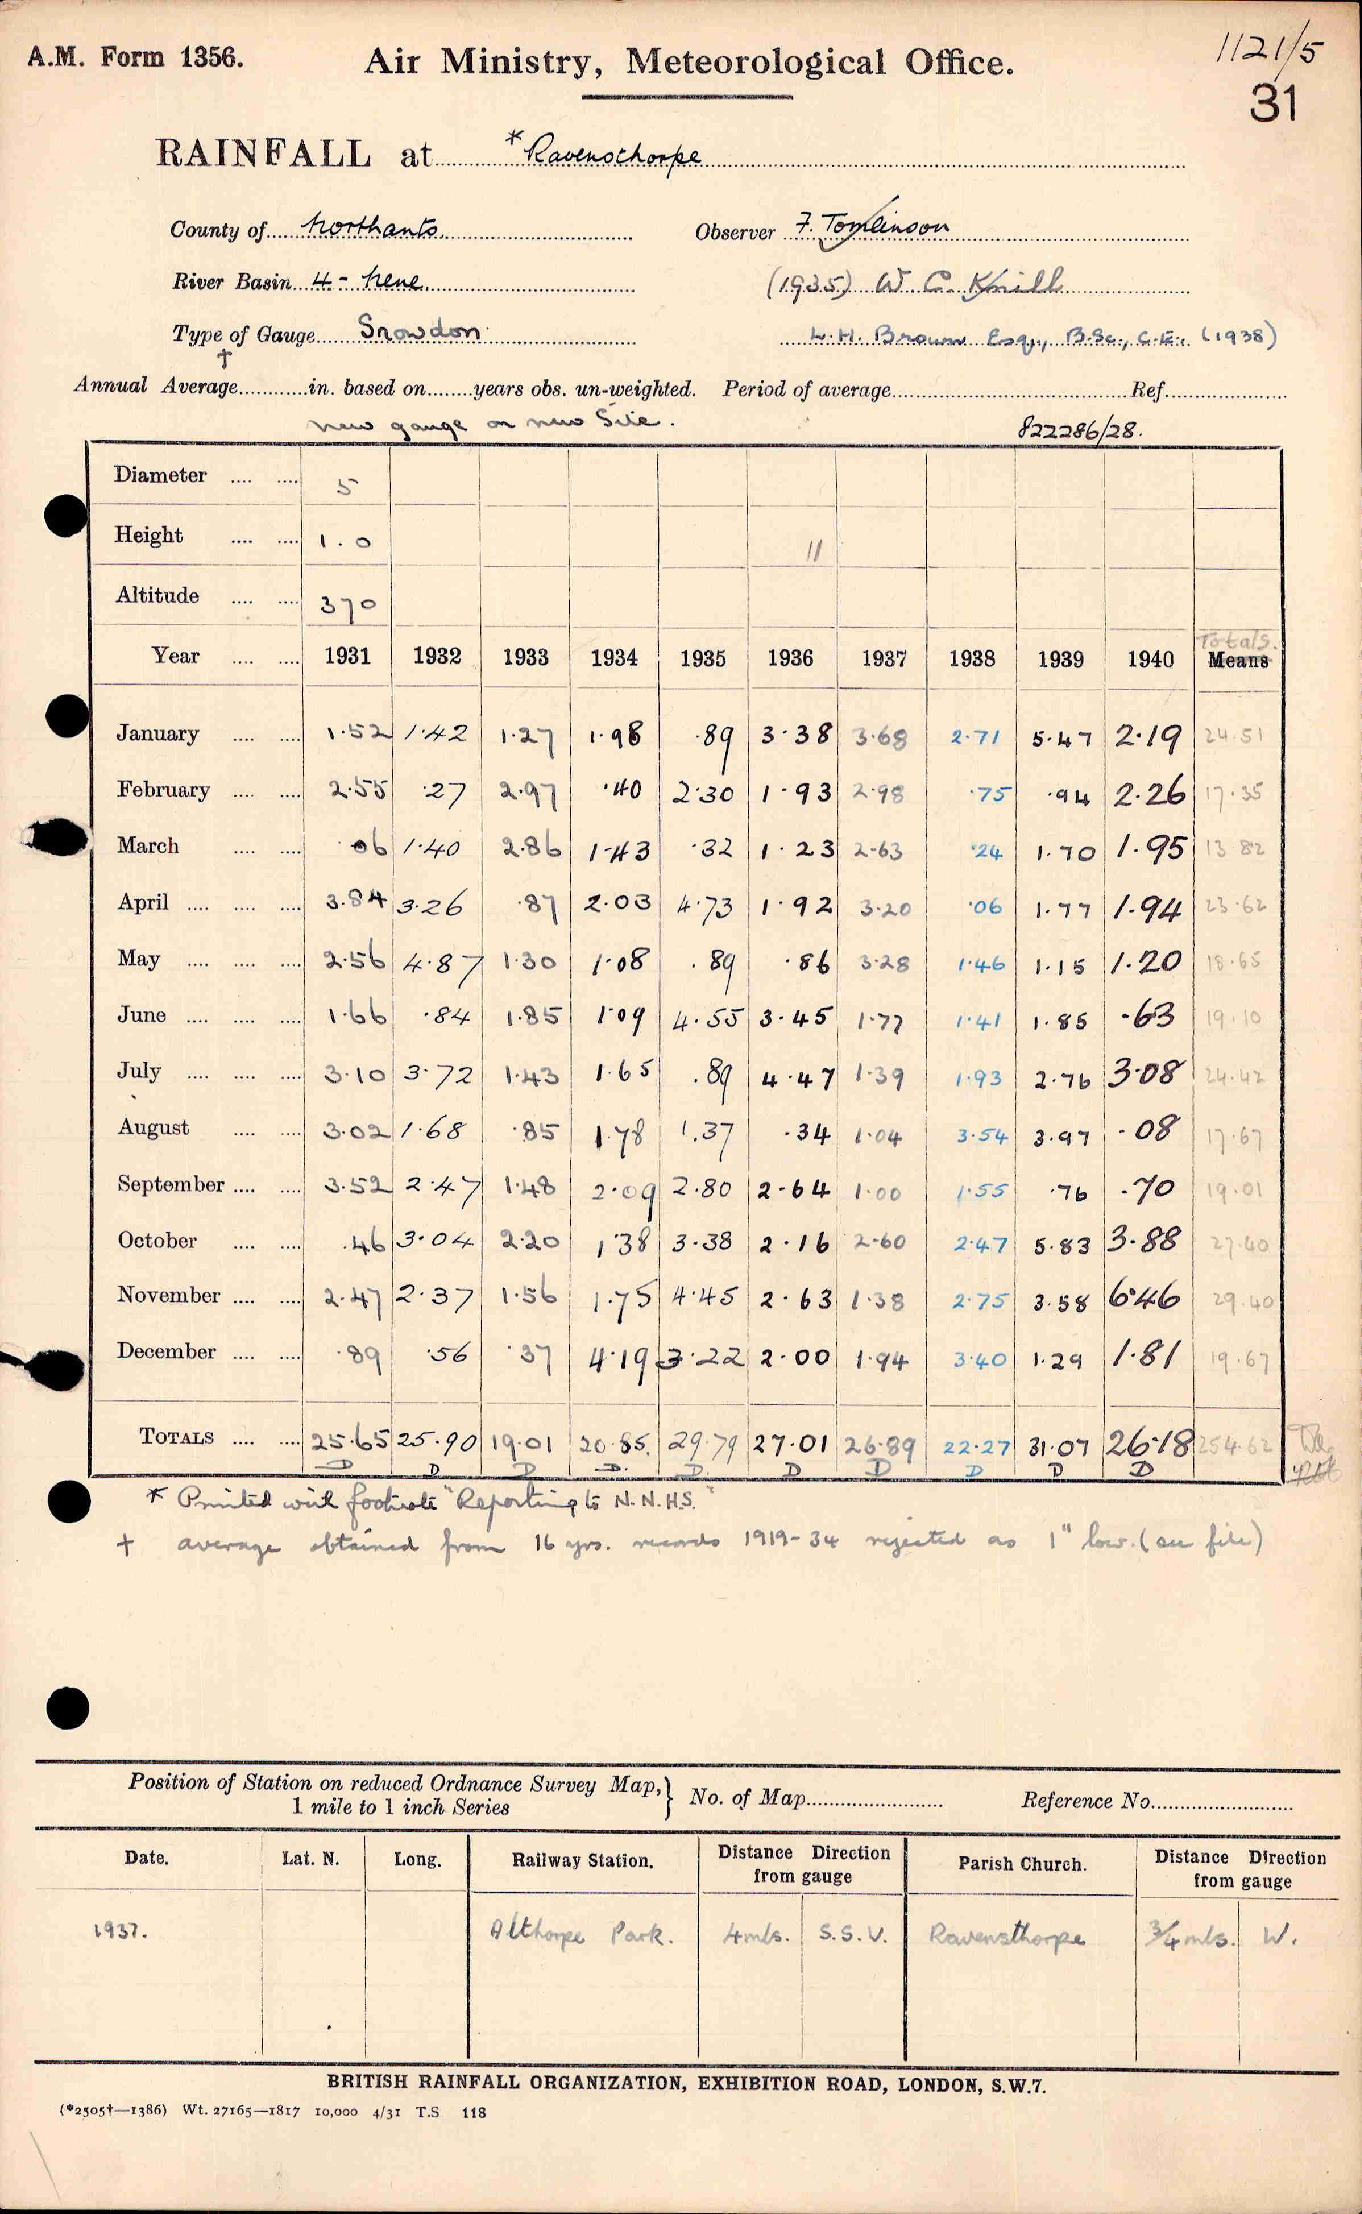 A.M. Form 1356. Air Ministry, Meteorological Office. 1121/5
31
RAINFALL at *Ravensthorpe
County of Northants Observer F. Tomlinson
River Basin 4 - Nene (1935) W. C. Knill
Type of Gauge Snowdon L. H. Brown Esq., B.Sc., C.E., (1938)
†
Annual Average............in. based on........years obs. un-weighted. Period of average............ Ref............
New gauge on new Site. 822286/28.
Diameter .... .... 5
Height .... .... 1.0 11
Altitude .... .... 370
Totals.
Year .... .... 1931 1932 1933 1934 1935 1936 1937 1938 1939 1940 Means
January .... .... 1.52 1.42 1.27 1.98 .89 3.38 3.68 2.71 5.47 2.19 24.51
February .... .... 2.55 .27 2.97 .40 2.30 1.93 2.98 .75 .94 2.26 17.35
March .... .... .06 1.40 2.86 1.43 .32 1.23 2.63 .24 1.70 1.95 13.82
April .... .... .... 3.84 3.26 .87 2.03 4.73 1.92 3.20 .06 1.77 1.94 23.62
May .... .... .... 2.56 4.87 1.30 1.08 .89 .86 3.28 1.46 1.15 1.20 18.65
June .... .... .... 1.66 .84 1.85 1.09 4.55 3.45 1.77 1.41 1.85 .63 19.10
July .... .... .... 3.10 3.72 1.43 1.65 .89 4.47 1.39 1.93 2.76 3.08 24.42
August .... .... 3.02 1.68 .85 1.78 1.37 .34 1.04 3.54 3.97 .08 17.67
September .... .... 3.52 2.47 1.48 2.09 2.80 2.64 1.00 1.55 .76 .70 19.01
October .... .... .46 3.04 2.20 1.38 3.38 2.16 2.60 2.47 5.83 3.88 27.40
November .... .... 2.47 2.37 1.56 1.75 4.45 2.63 1.38 2.75 3.58 6.46 29.40
December .... .... .89 .56 .37 4.19 3.22 2.00 1.94 3.40 1.29 1.81 19.67
TOTALS .... .... 25.65 25.90 19.01 20.85. 29.79 27.01 26.89 22.27 31.07 26.18 254.62
D D D D. D D D D D D
* Printed with footnote "Reporting to N.N.H.S."
† average obtained from 16 yrs. records 1919-34 rejected as 1" low. (see file)
Position of Station on reduced Ordnance Survey Map,} No. of Map............ Reference No............
1 mile to 1 inch Series
Date. Lat. N. Long. Railway Station. Distance Direction from gauge Parish Church. Distance Direction from gauge
1937. Althorpe Park. 4 mls. S.S.W. Ravensthorpe 3/4 mls. W.
BRITISH RAINFALL ORGANIZATION, EXHIBITION ROAD, LONDON, S.W.7.
(*2505†—1386) Wt. 27165—1817 10,000 4/31 T.S 118